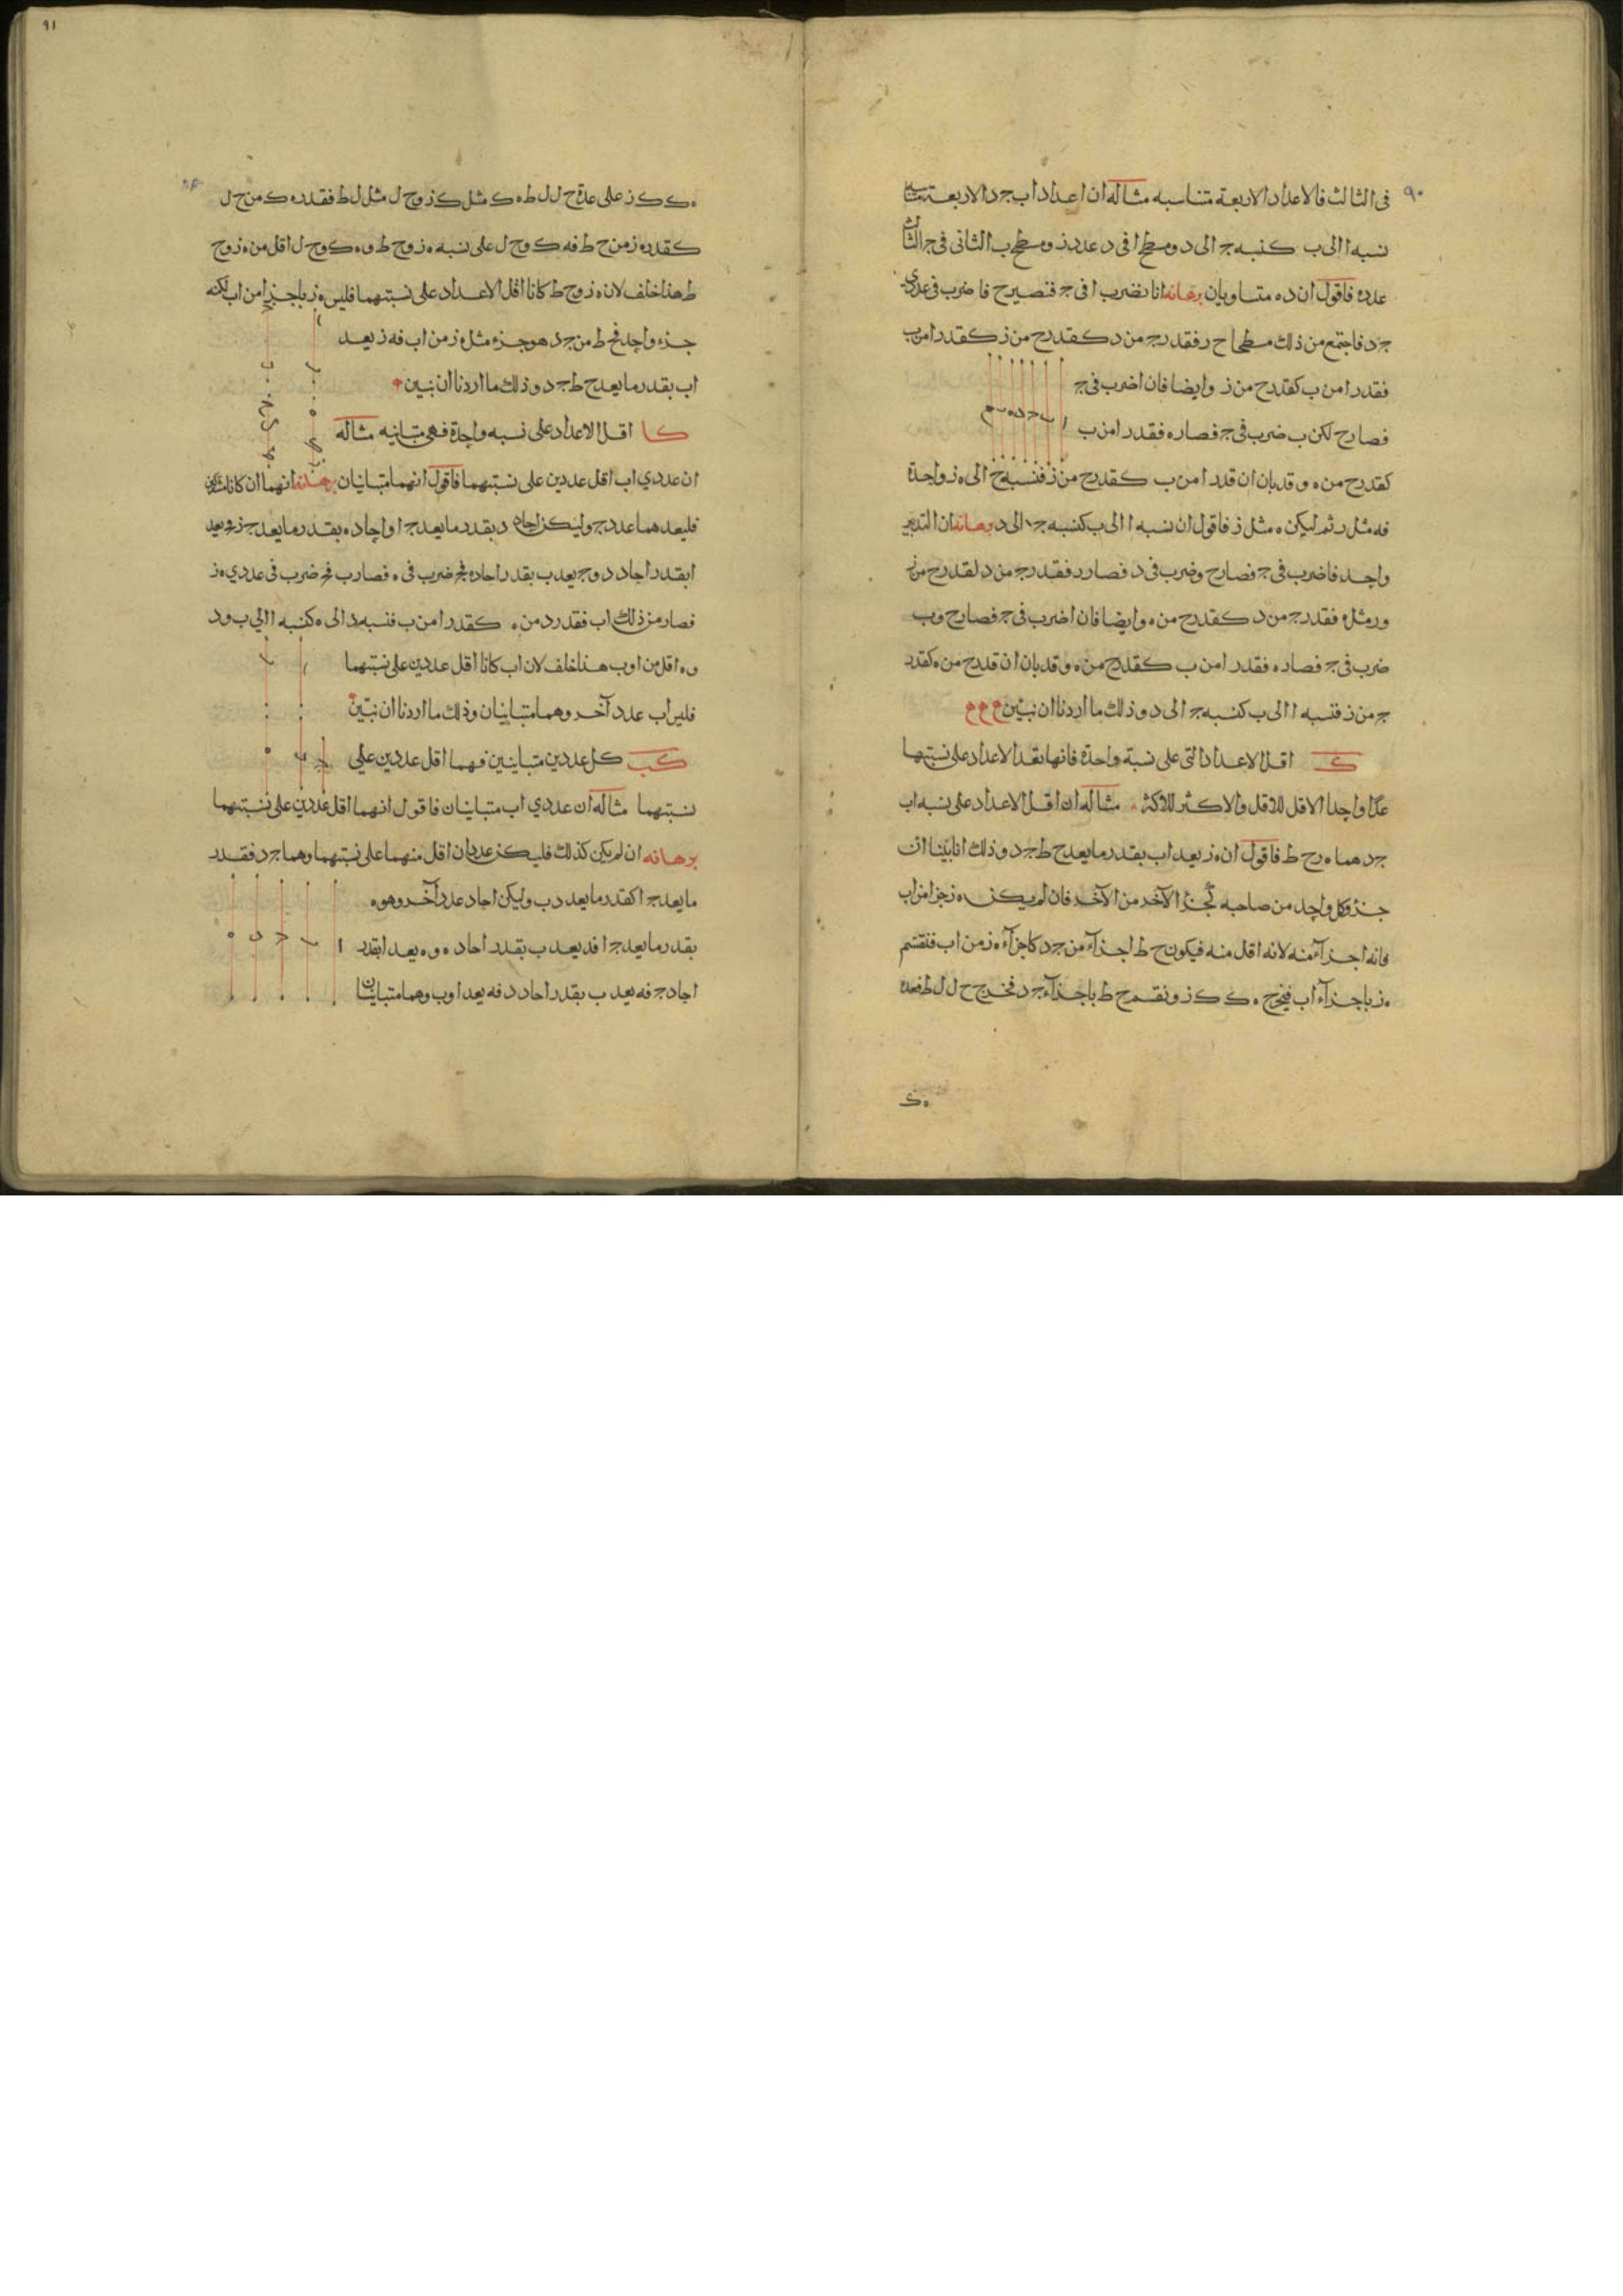 ٩٠
فى الثالث فالاعداد الاربعة متناسبه مثاله ان اعداد اب جد الاربعة
نسبه ا الى ب كنسبه ج الى د ومسطح ا فى د عدد ز ومسطح ب الثانى فى ج الثالث
عدد ه فاقول ان ده متساويان برهانه انا نضرب ا فى ج فنصير ح فا ضرب فى عددى
جد فاجتمع من ذلك مسطحا ح ر فقدر ج من د كقدر ح من ز كقدر ا من ب
فقدر ا من ب كقدر ح من ز وايضا فان ا ضرب فى ج
فصار ح لكن ب ضرب فى ج فصار ه فقدر ا من ب
ا ب ج د ه
كقدر ح من ه وقد بان ان قدر ا من ب كقدر ح من ز فنسبه ح الى ه ز واحدة
فه مثل ر ثم ليكن ه مثل ز فاقول ان نسبه ا الى ب كنسبه ج الى د برهانه ان التدبير
واحد فا ضرب فى ج فصار ح وضرب فى د فصار ر فقدر ج من د كقدر ح من ز
ور مثل ه فقدر ج من د كقدر ح من ه وايضا فان ا ضرب فى ج فصار ح وب
ضرب فى ج فصار ه فقدر ا من ب كقدر ح من ه وقد بان ان قدر ح من ه كقدر
ج من ز فنسبه ا الى ب كنسبه ج الى د وذلك ما اردنا ان نبين م م م
ك اقل الاعداد التى على نسبة واحدة فانها تعد الاعداد على نسبتها
عدا واحدا الاقل للاقل والاكثر للاكثر مثاله ان اقل الاعداد على نسبه اب
جد هما ه ر ح ط فاقول ان ه ز يعد اب بقدر ما يعد ح ط جد وذلك انا بينا ان
جزؤ كل واحد من صاحبه كجزؤ الآخر من الآخر فان لم يكن ه ز جزا من اب
فانه اجزآء منه لانه اقل منه فيكون ح ط اجزآء من جد كاجزآء ه ز من اب فنقسم
ه ز باجزآء اب فيخرج ه ك ك ز ونقسم ح ط باجزآء جد فخرج ح ل ل ط فعدة
ه ك
٩١
ه ك ك ز على عدة ح ل ل ط ه ك مثل ك ز وح ل مثل ل ط فقدر ه ك من ح ل
كقدر ه ز من ح ط فه ك وح ل على نسبه ه ز وح ط وه ك وح ل اقل من ه ز وح
ط هذا خلف لان ه ز وح ط كانا اقل الاعداد على نسبتهما فليس ه ز باجزا من اب لكنه
جزء واحد فح ط من جد هو جزء مثل ه ز من اب فه ز يعد
اب بقدر ما يعد ح ط جد وذلك ما اردنا ان نبين
كا اقل الاعداد على نسبه واحدة فهى متباينه مثاله
ان عددي اب اقل عددين على نسبتهما فاقول انهما متباينان برهانه انهما ان كانا مشتركين
فليعدهما عدد ج وليكن احاد د بقدر ما يعد ج ا واحاد ه بقدر ما يعد ج ب فج يعد
ا بقدر احاد د وج يعد ب بقدر احاد ه فج ضرب فى ه فصار ب فج ضرب فى عددي ه ز
فصار من ذلك اب فقدر د من ه كقدر ا من ب فنسبه د الى ه كنسبه ا الي ب ود
وه اقل من ا وب هذا خلف لان اب كانا اقل عددين على نسبتهما
فليس اب عدد آخر وهما متباينان وذلك ما اردنا ان نبين
كب كل عددين متباينين فهما اقل عددين علي
نسبتهما مثاله ان عددي اب متباينان فاقول انهما اقل عددين على نسبتهما
برهانه ان لم يكن كذلك فليكن عددان اقل منهما على نسبتهما وهما جد فقدر
ما يعد ج ا كقدر ما يعد د ب وليكن احاد عدد آخر وهو ه
بقدر ما يعد ج ا فد يعد ب بقدر احاد ه وه يعد ا بقدر
ا ب ج د ه
احاد ج فه يعد ب بقدر احاد د فه يعد ا وب وهما متباينان